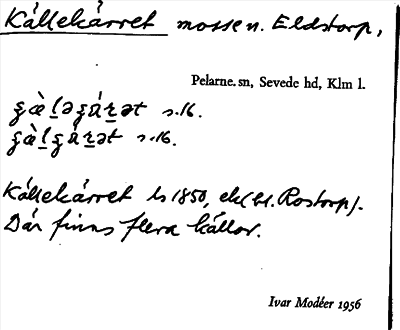 Källekärret mosse n. Eldstorp,
Pelarne. sn, Sevede hd, Klm l.
s. 16.
s. 16.
Källekärret ls 1850, ek (bl. Rostorp).
Där finns flera källor.
Ivar Modéer 1956